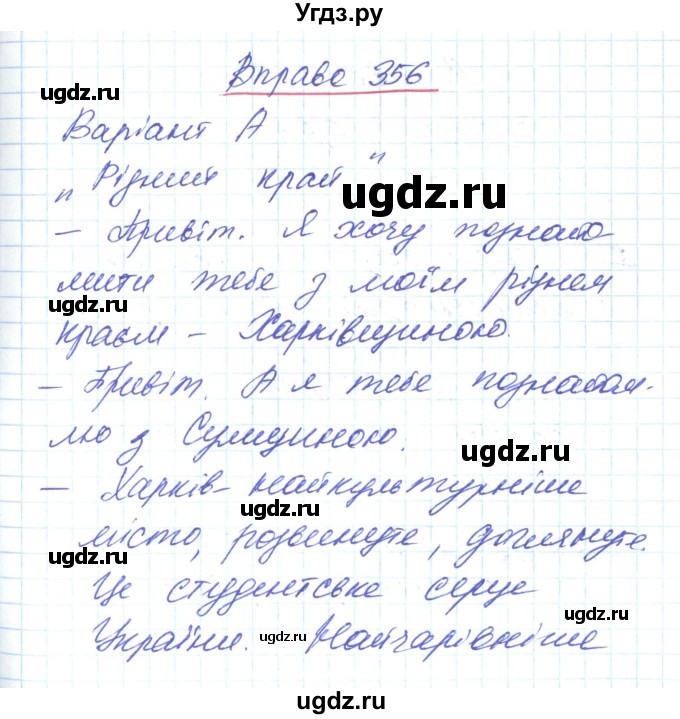 Угдз.ру
Вправа 356
ugdz.ru
Варіант А
„Рідний край"
ugdz.ru
– Привіт. Я хочу познайо
мити тебе з моїм рідним
ugdz.ru
краєм – Харківщиною.
– Привіт. А я тебе познайом-
ugdz.ru
лю з Сумщиною.
ugdz.ru
– Харків – найкультурніше
місто, розвинуте, доглянуте.
ugdz.ru
Це студентське серце
ugdz.ru
України. Найчарівніше
ugdz.ru
ugdz.ru